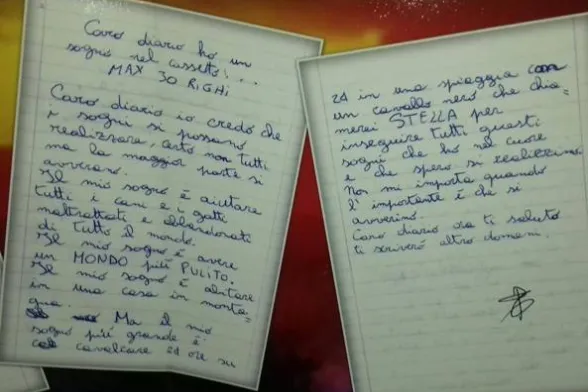 Caro diario ho un
sogno nel cassetto!...
MAX 30 RIGHI
Caro diario io credo che
i sogni si possano
realizzare, certo non tutti
ma la maggior parte si
avverano.
Il mio sogno è aiutare
tutti i cani e i gatti
maltrattati e abbandonati
di tutto il mondo.
Il mio sogno è avere
un MONDO più PULITO.
Il mio sogno è abitare
in una casa in monta=
gna.
Ma il mio
sogno più grande è:
cavalcare 24 ore su
24 in una spiaggia con
un cavallo nero che chia=
merei STELLA per
inseguire tutti questi
sogni che ho nel cuore
e che spero si realizzino.
Non mi importa quando
l'importante è che si
avverino.
Caro diario ora ti saluto
ti scriverò altro domani.